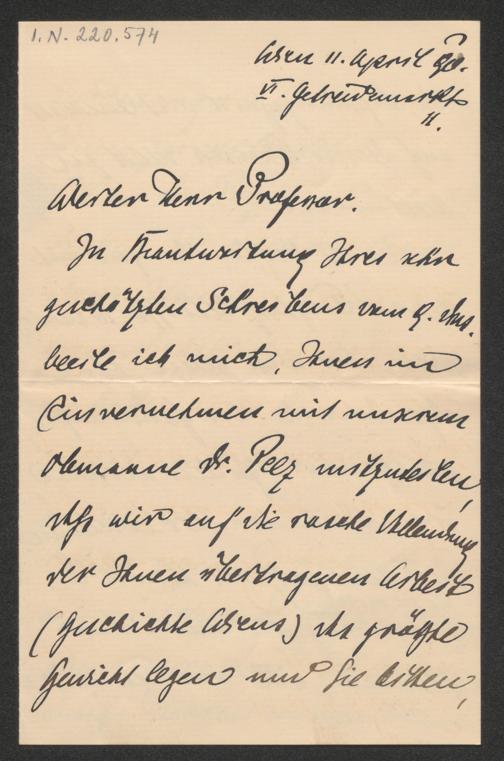 I.N. 220.574
Wien 11. April 90.
VI. Getreidemarkt
11.
Werter Herr Professor.
In Beantwortung Ihres sehr
geschätzten Schreibens vom 9. dss.
beeile ich mich, Ihnen im
Einvernehmen mit unserem
Obmanne Dr. Peez mitzuteilen,
daß wir auf die rasche Vollendung
der Ihnen übertragenen Arbeit
(Geschichte Wiens) das größte
Gewicht legen und Sie bitten,